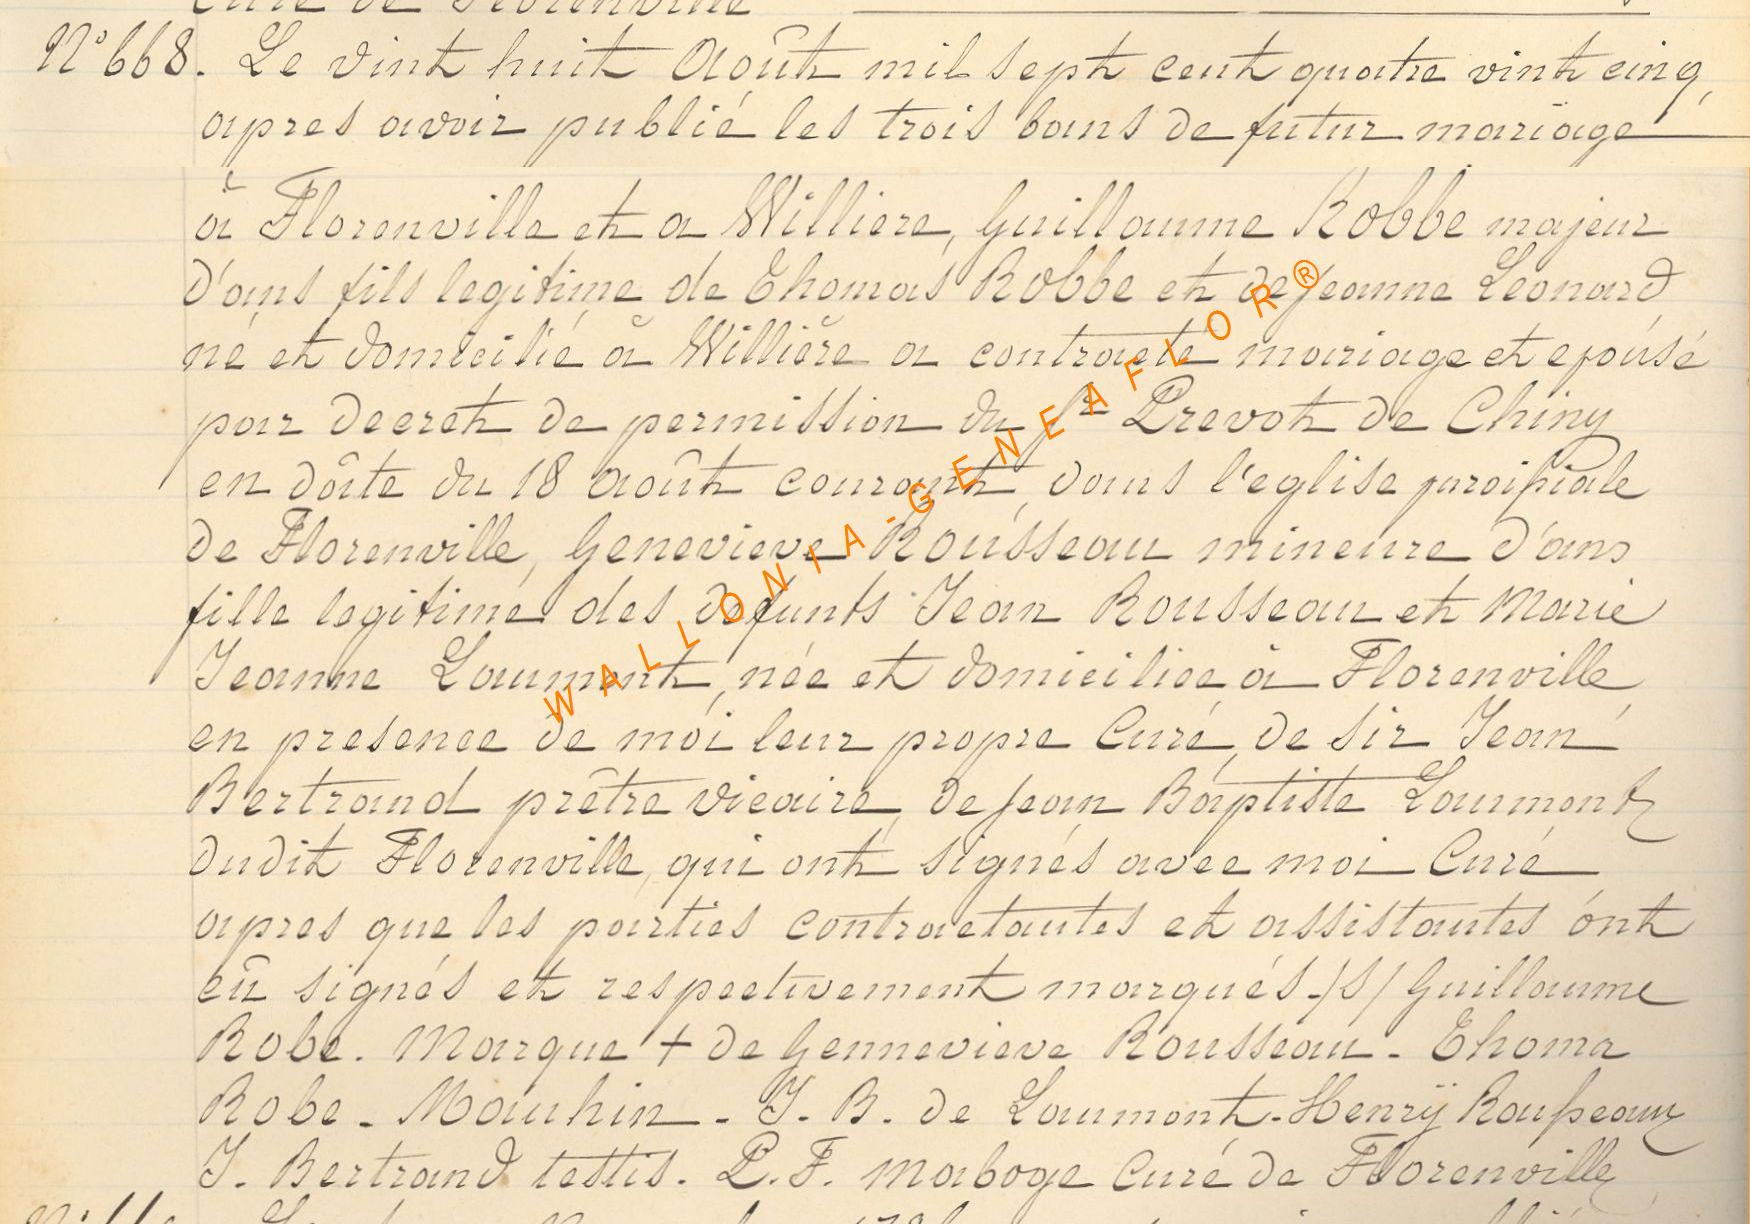 Curé de Florenville
N° 668. Le vint huit Août mil sept cent quatre vint cinq,
apres avoir publié les trois bans de futur mariage
à Florenville et a Williere, Guillaume Robbe majeur
d'ans fils legitime de Thomas Robbe et de Jeanne Leonard
né et domicilié à Willière a contracté mariage et epousé
par decret de permission du Sr Prevot de Chiny
en dâte du 18 août courant, dans l'eglise paroissiale
de Florenville, Genevieve Rousseau mineure d'ans
fille legitime des defunts Jean Rousseau et Marie
Jeanne Laumont, née et domiciliee à Florenville
en presence de moi leur propre Curé, de Sir Jean
Bertrand prêtre vicaire, de Jean Baptiste Laumont
dudit Florenville, qui ont signés avec moi Curé
apres que les parties contractantes et assistantes ont
eû signés et respectivement marqués -/S/ Guillaume
Robe. Marque + de Gennevieve Rousseau - Thoma
Robe - Mauhin - J. B. de Laumont - Henrÿ Rousseaux
J. Bertrand testis. P. F. Maboge Curé de Florenville
WALLONIA-GENEAFLOR®